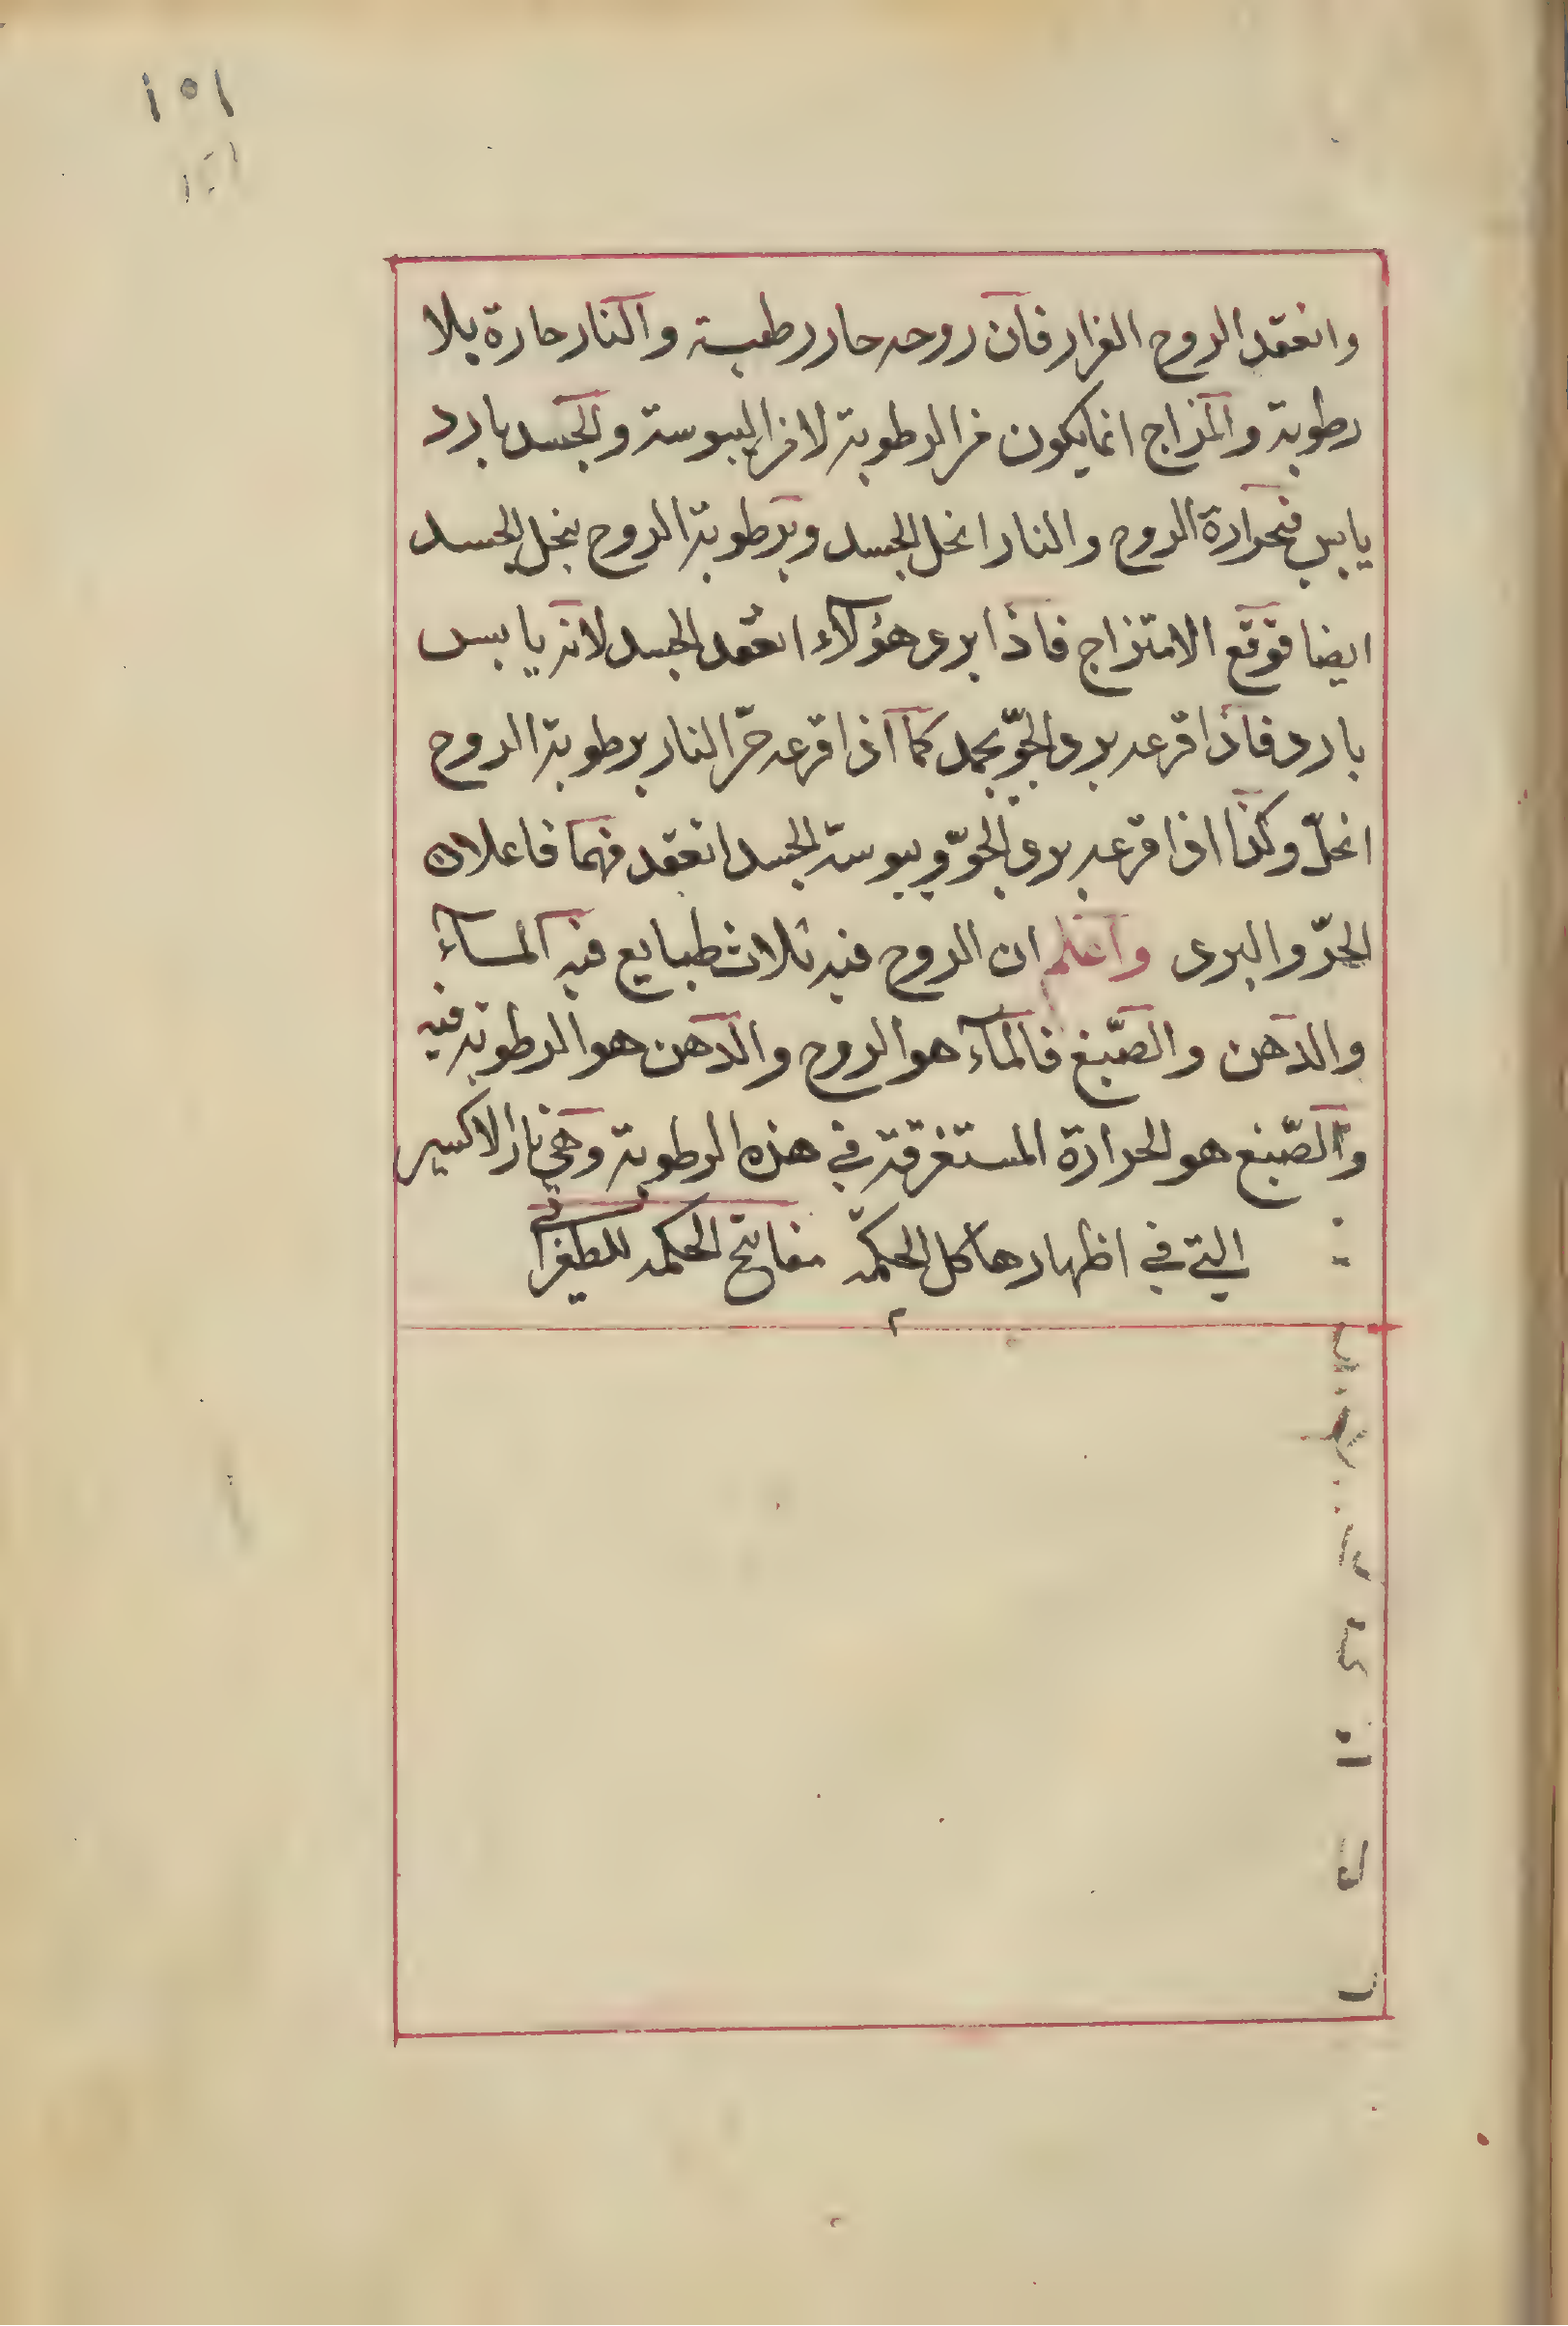 ١٥١
وانعقد الروح الفرار فان روحه حار رطبة والنار حارة بلا
رطوبة والمزاج انما يكون من الرطوبة لا من اليبوسة والجسد بارد
يابس فبحرارة الروح والنار انحل الجسد وبرطوبة الروح ينحل الجسد
ايضا فوقع الامتزاج فاذا برد هؤلاء انعقد الجسد لانه يابس
بارد فاذا قرعه برد الجوّ يجمد كما اذا قرعه حرّ النار برطوبة الروح
انحلّ وكذا اذا قرعه برد الجوّ ويبوسة الجسد انعقد فهما فاعلان
الحرّ والبرد واعلم ان الروح فيه ثلاث طبايع فيه المآء
والدهن والصّبغ فالمآء هو الروح والدهن هو الرطوبة فيه
والصّبغ هو الحرارة المستغرقة في هذه الرطوبة وهي نار الاكسير
التي في اظهارها كل الحكمة مفاتيح الحكمه للطغرائي
م